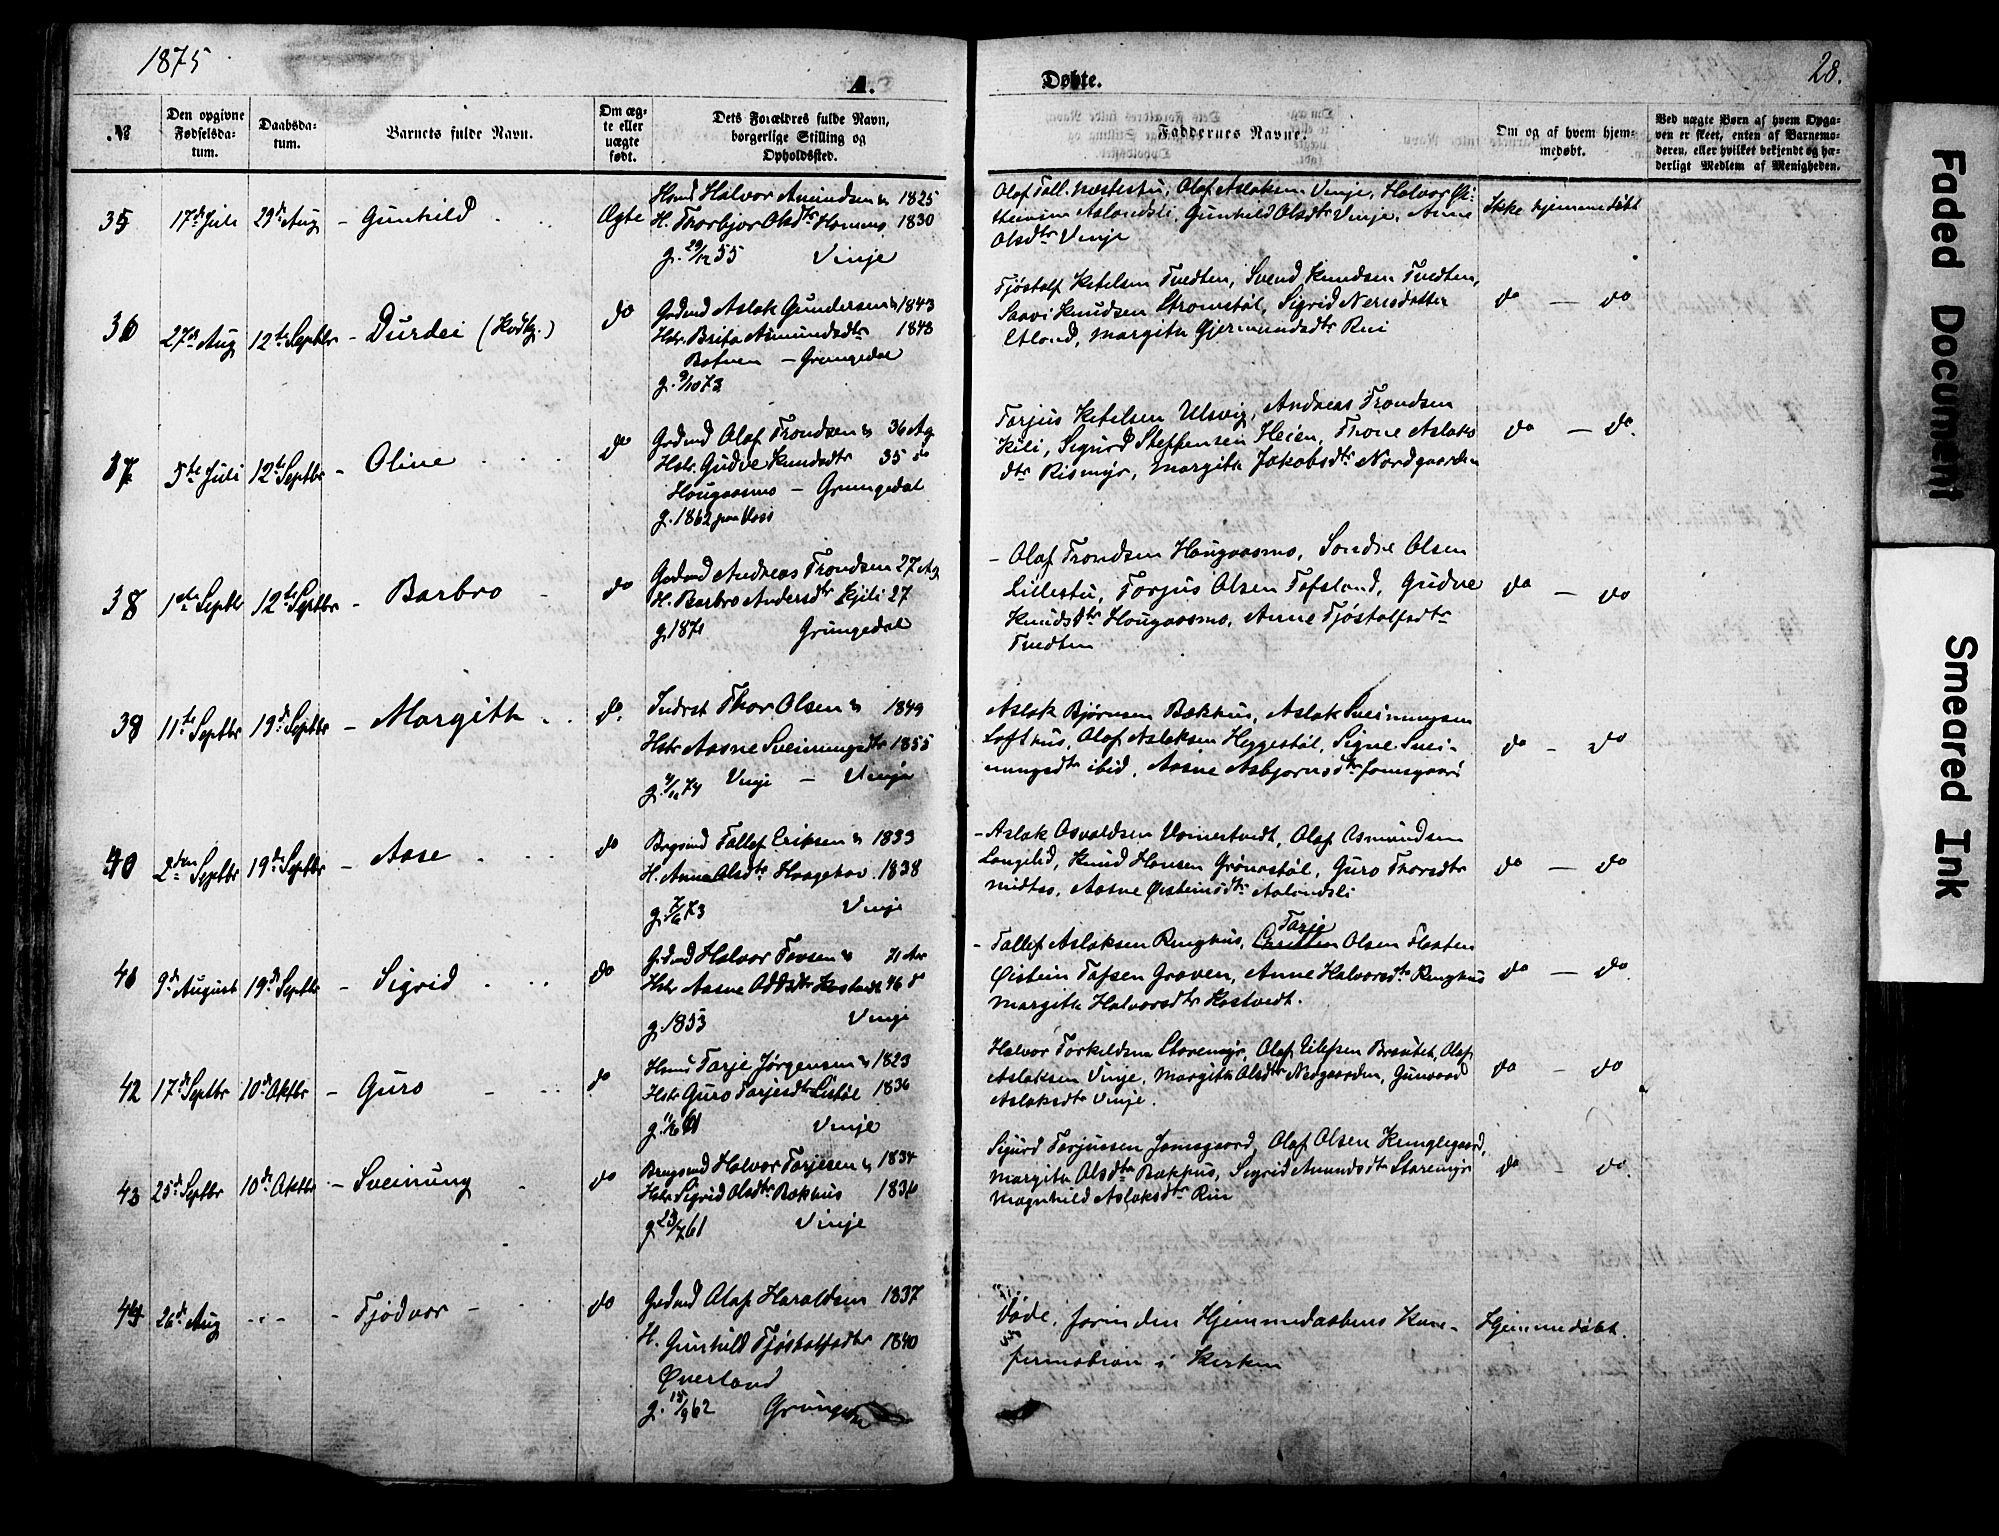 1875
28.
A.
Døbte.
№
Den opgivne Fødselsda-tum.
Daabsda-tum.
Barnets fulde Navn.
Om æg-te eller uægte født.
Dets Forældres fulde Navn, borgerlige Stilling og Opholdssted.
Faddernes Navne.
Om og af hvem hjem-medøbt.
Ved uægte Børn af hvem Opga-ven er skeet, enten af Barnemo-deren, eller hvilket bekjendt og hæ-derligt Medlem af Menigheden.
35 17de Juli 29de Aug - Gunhild Ægte
Halvor Amundsen 1825
H. Thorbjør Olsdtr 1830
g. 29/12 55 Vinje
Olaf Aslaksen Vinje, Halvor
Gunhild Olsdtr Vinje, Anne
Olsdtr Vinje
Ikke hjemmedøbt
36 27de Aug 12te Septbr - Durdei do
Aslak Gundersen 1843
Brita Asmundsdtr 1848
Botnen - Grungedal
g. 9/10 73
Tjøstolf Ketelsen Tvedten, Svend Knudsen Tvedten,
Saavi Knudsen Strømstøl, Sigrid Neresdatter
Margith Gjermundsdtr
do - do
37 5te Juli 12te Septbr - Oline do
Olaf Trondsen 36 Ag
Gudve Knudsdtr 35 do
Hougaasmo - Grungedal
g. 1862 paa Voss
Torjus Ketelsen Ulsvig, Andreas Trondsen
Kili, Sigurd Steffensen Heien, Thone Aslaks
dtr Rismyr, Margith Jakobsdtr Nordgaarden
do - do.
38 1ste Septbr 12te Septbr - Barbro do
Andreas Trondsen 27 Ag
H. Barbro Andersdtr Kjili 27
g. 1871 Grungedal
- Olaf Trondsen Hougaasmo, Sondre Olsen
Lillestu, Torjus Olsen Tofsland, Gudve
Knudsdtr Hougaasmo, Anne Tjøstolfsdtr
Tvedten
do - do
39 11te Septbr 19de Septbr - Margith do.
Inderst Thor Olsen 1849
Aasne Sveinungsdtr 1855
Vinje - Vinje
Aslak Bjørnsen Bækhus, Aslak Sveinungsen
Lofthus, Olaf Aslaksen Heggestøl, Signe Svei-
nungsdtr ibid, Aasne Asbjørnsdtr Jamsgaard
do - do
40 2den Septbr 19de Septbr - Aase do
Tallef Eriksen 1833
H. Anne Olsdtr 1838
Vinje
- Aslak Osvaldsen Vamertvedt, Olaf Osmundsen
Langelid, Knud Hansen Grønestøl, Guro Thorsdtr
Midtbø, Aasne Øisteinsdtr
do - do
41 9de August 19de Septbr - Sigrid do
Halvor Tovsen
Aasne Oddsdtr Kostvedt 46 d
g. 1853 Vinje
Tarje
- Tallef Aslaksen Ringhus, Olsen Flaten
Øistein Tofsen Graven, Anne Halvorsdtr Ringhus
Margith Halvorsdtr Kostvedt.
do - do
42 17de Septbr 10de Oktbr - Guro do
Tarje Jørgensen 1823
Guro Tarjesdtr 1836
Vinje
Halvor Torkildsen Staremyr, Olaf Eilefsen Olaf
Aslaksen Vinje, Margith Olsdtr Nedgaarden, Gunvor
Aslaksdtr Vinje.
do - do
43 25de Septbr 10de Oktbr - Sveinung do
Halvor Tarjesen 1834
Sigrid Olsdtr Bækhus
g. 23/7 61 Vinje
Sigurd Torjussen Jamsgaard, Olaf Olsen Kringlegaard,
Margith Olsdtr Bækhus, Sigrid Amundsdtr Staremyr
Magnhild Aslaksdtr
do - do
44 26de Aug - Tjødvor - do
Olaf Haraldsen 1837
H. Gunhild Tjøstolfsdtr 1840
Øverland
g. 15/9 62
Døde, førinden Hjemmedaabens Kon-
firmation i Kirken
Hjemmedøbt.
Faded Document
Smeared Ink